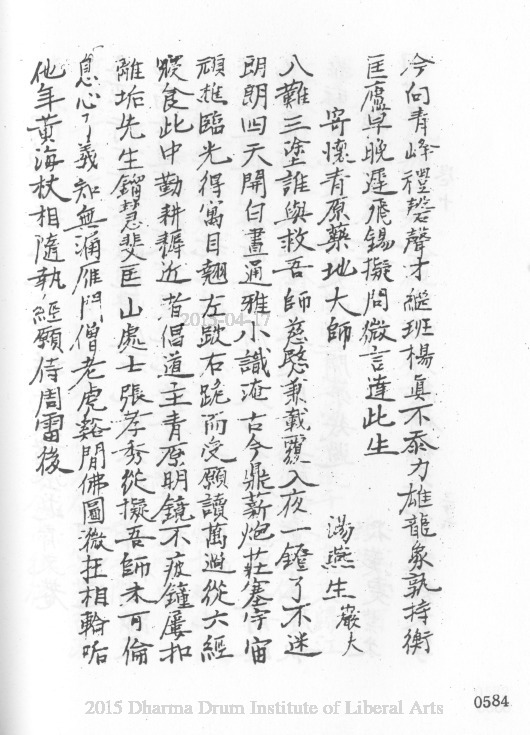 今向青峰禮磬聲才繼班楊真不忝力雄龍象孰持衡
匡廬早晚遲飛錫擬問微言達此生
寄懷青原藥地大師
湯燕生巖夫
八難三塗誰與救吾師慈愍兼載覆入夜一鐙了不迷
朗朗四天開白晝通雅小識淹古今鼎薪炮莊塞宇宙
頑樵臨光得寓目翹左跂右跪而受願讀萬遍從六經
寢食此中勤耕耨近昔倡道主青原明鏡不疲鐘屢扣
離垢先生鎦慧斐匡山處士張孝秀從擬吾師未可倫
息心了義知無漏雁門僧老虎谿閒佛圖微在相輪
他年黄海杖相隨執經願侍周雷後
2015-04-17
0584
2015 Dharma Drum Institute of Liberal Arts